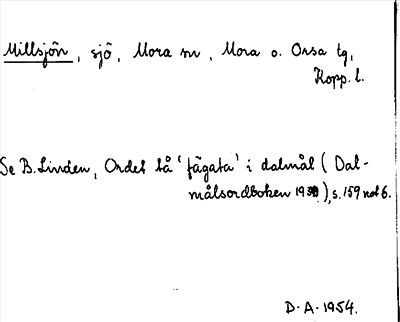 Millsjön, sjö, Mora sn, Mora o. Orsa tg,
Kopp. l.
Se B. Linden, Ordet tå 'fägata' i dalmål (Dal-
målsordboken), s. 159 not 6.
D. A. 1954.